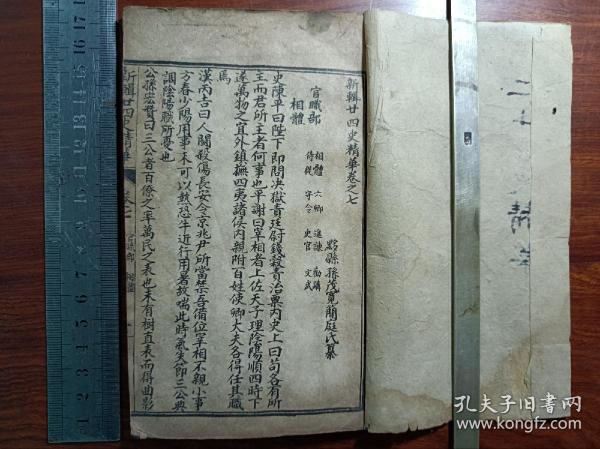 新輯廿四史精華卷之七
黟縣孫茂寬簡庭氏纂
官職部
相體 六卿 進諫 勸講
侍從 守令 史官 文武
相體
史陳平曰陛下即問決獄責廷尉錢穀責治粟內史上曰茍各有所
主而君所主者何事也平謝曰宰相者上佐天子理陰陽順四時下
遂萬物之宜外鎮撫四夷諸侯內親附百姓使卿大夫各得任其職
焉
漢丙吉曰人鬭殺傷長安令京兆尹所當禁吾備位宰相不親小事
方春少陽用事未可以熱恐牛近行用暑故喘此時氣失節三公典
調陰陽職所憂也
公孫宏贊曰三公者百僚之率萬民之表也未有樹直表而得曲影
新輯廿四史精華
卷七
官職部 相體
孔夫子旧书网
www.kongfz.com